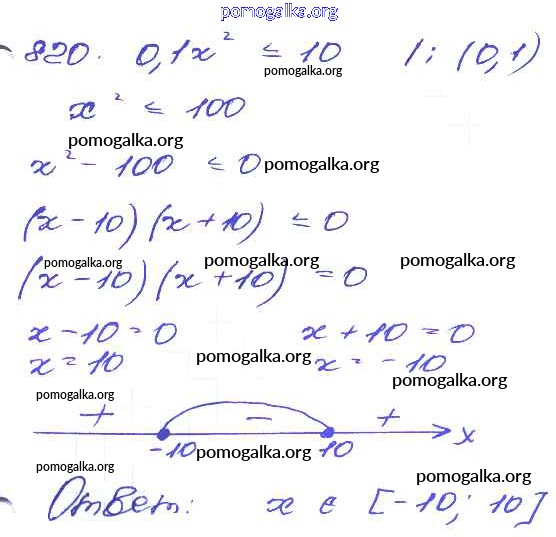 pomogalka.org
820. 0,1x² ≤ 10 | : (0,1)
pomogalka.org
x² ≤ 100
pomogalka.org
x² - 100 ≤ 0 pomogalka.org
(x - 10)(x + 10) ≤ 0
pomogalka.org pomogalka.org pomogalka.org
(x - 10)(x + 10) = 0
x - 10 = 0 x + 10 = 0
x = 10 pomogalka.org x = - 10
pomogalka.org
pomogalka.org
+ - +
-10 pomogalka.org 10 x
pomogalka.org pomogalka.org
Ответ: x ∈ [-10; 10]